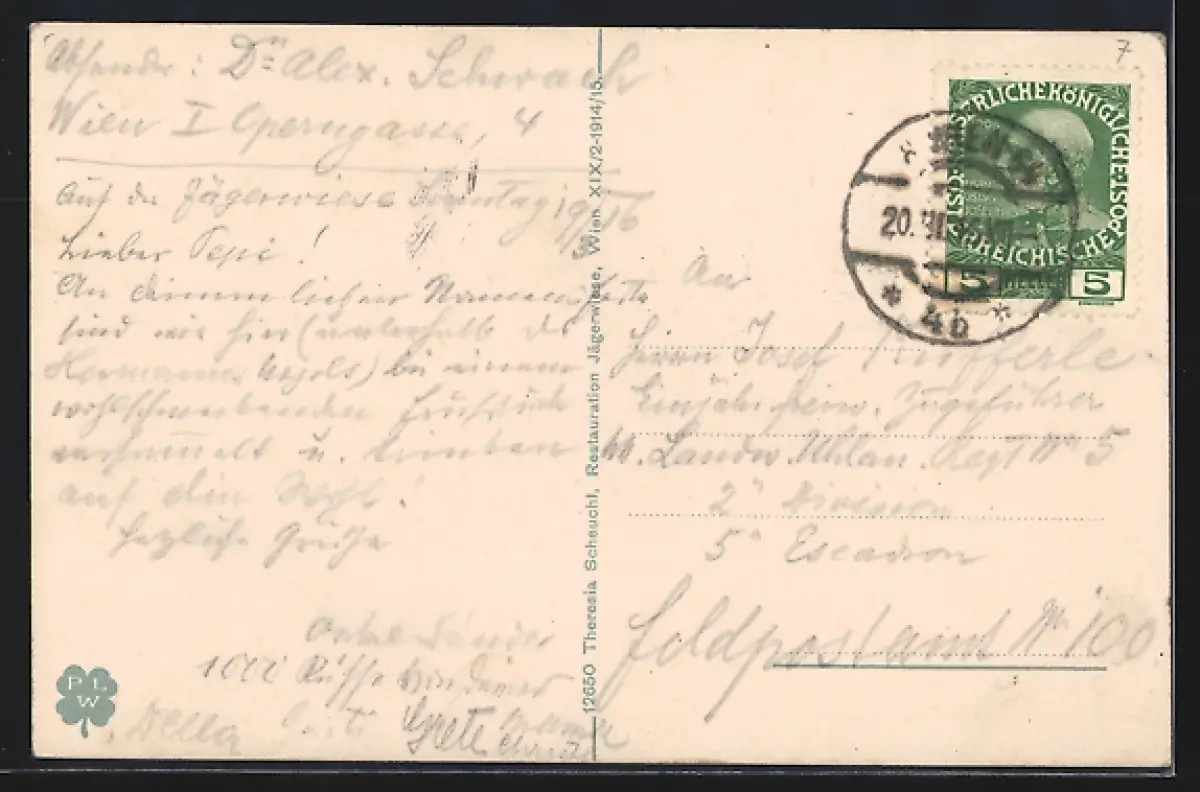 Absender: Dr. Alex. Schwach
Wien I Operngasse, 4
Auf der Jägerwiese Sonntag 19/3 16
Lieber Pepi!
An deinem Namensfeste
sind wir hier (unterhalb des
Hermanns) bei einem
wohlschmeckenden Frühstück
versammelt u. trinken
auf dein Wohl!
herzliche Grüße
Onkel
1000 Küsse von deiner
Mama
Della Grete
PLW
12650 Theresia Scheuchl, Restauration Jägerwiese, Wien XIX/2-1914/15.
7
KAISERLICHE KÖNIGLICHE ÖSTERREICHISCHE POST
5 5
WIEN
20. III.
4b
An
Herrn Josef
Einjähr. freiw. Zugsführer
Landw. Uhlan. Regt Nr 5
2. Division
5. Escadron
Feldpostamt Nr. 100.